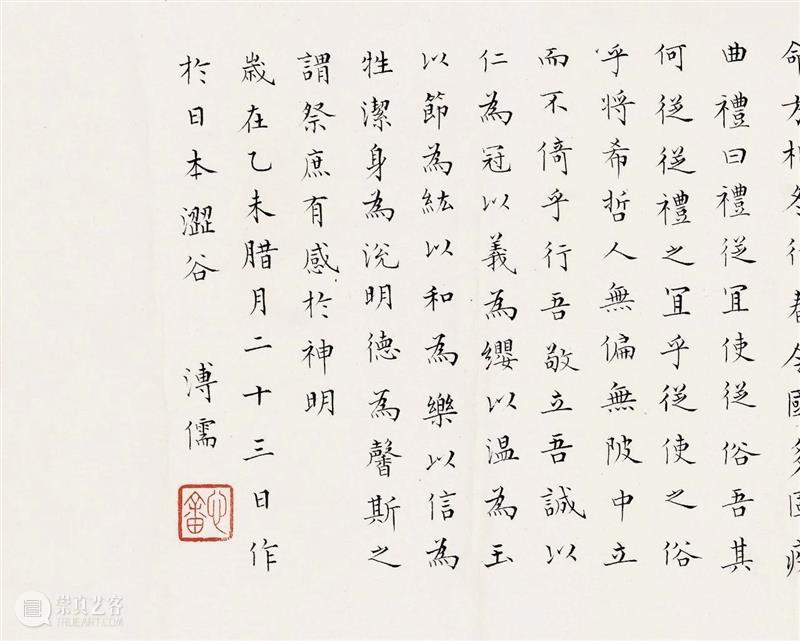 命方相冬行春令國多固疾
曲禮曰禮從宜使從俗吾其
何從從禮之宜乎從使之俗
乎將希哲人無偏無陂中立
而不倚乎行吾敬立吾誠以
仁為冠以義為纓以溫為玉
以節為紘以和為樂以信為
牲潔身為涗明德為馨斯之
謂祭庶有感於神明
歲在乙未腊月二十三日作
於日本澀谷 溥儒
心畬
崇真艺客
TRUEART.COM